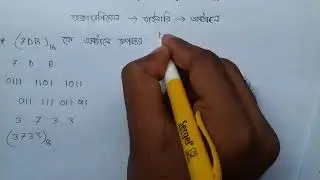 হেক্সাডেসিমেল → বাইনারি → অক্টালে
* (7DB)₁₆ কে অক্টালে রূপান্তর
7 D B
0111 1101 1011
011 111 011 011
3 7 3 3
(3733)₈
Serges